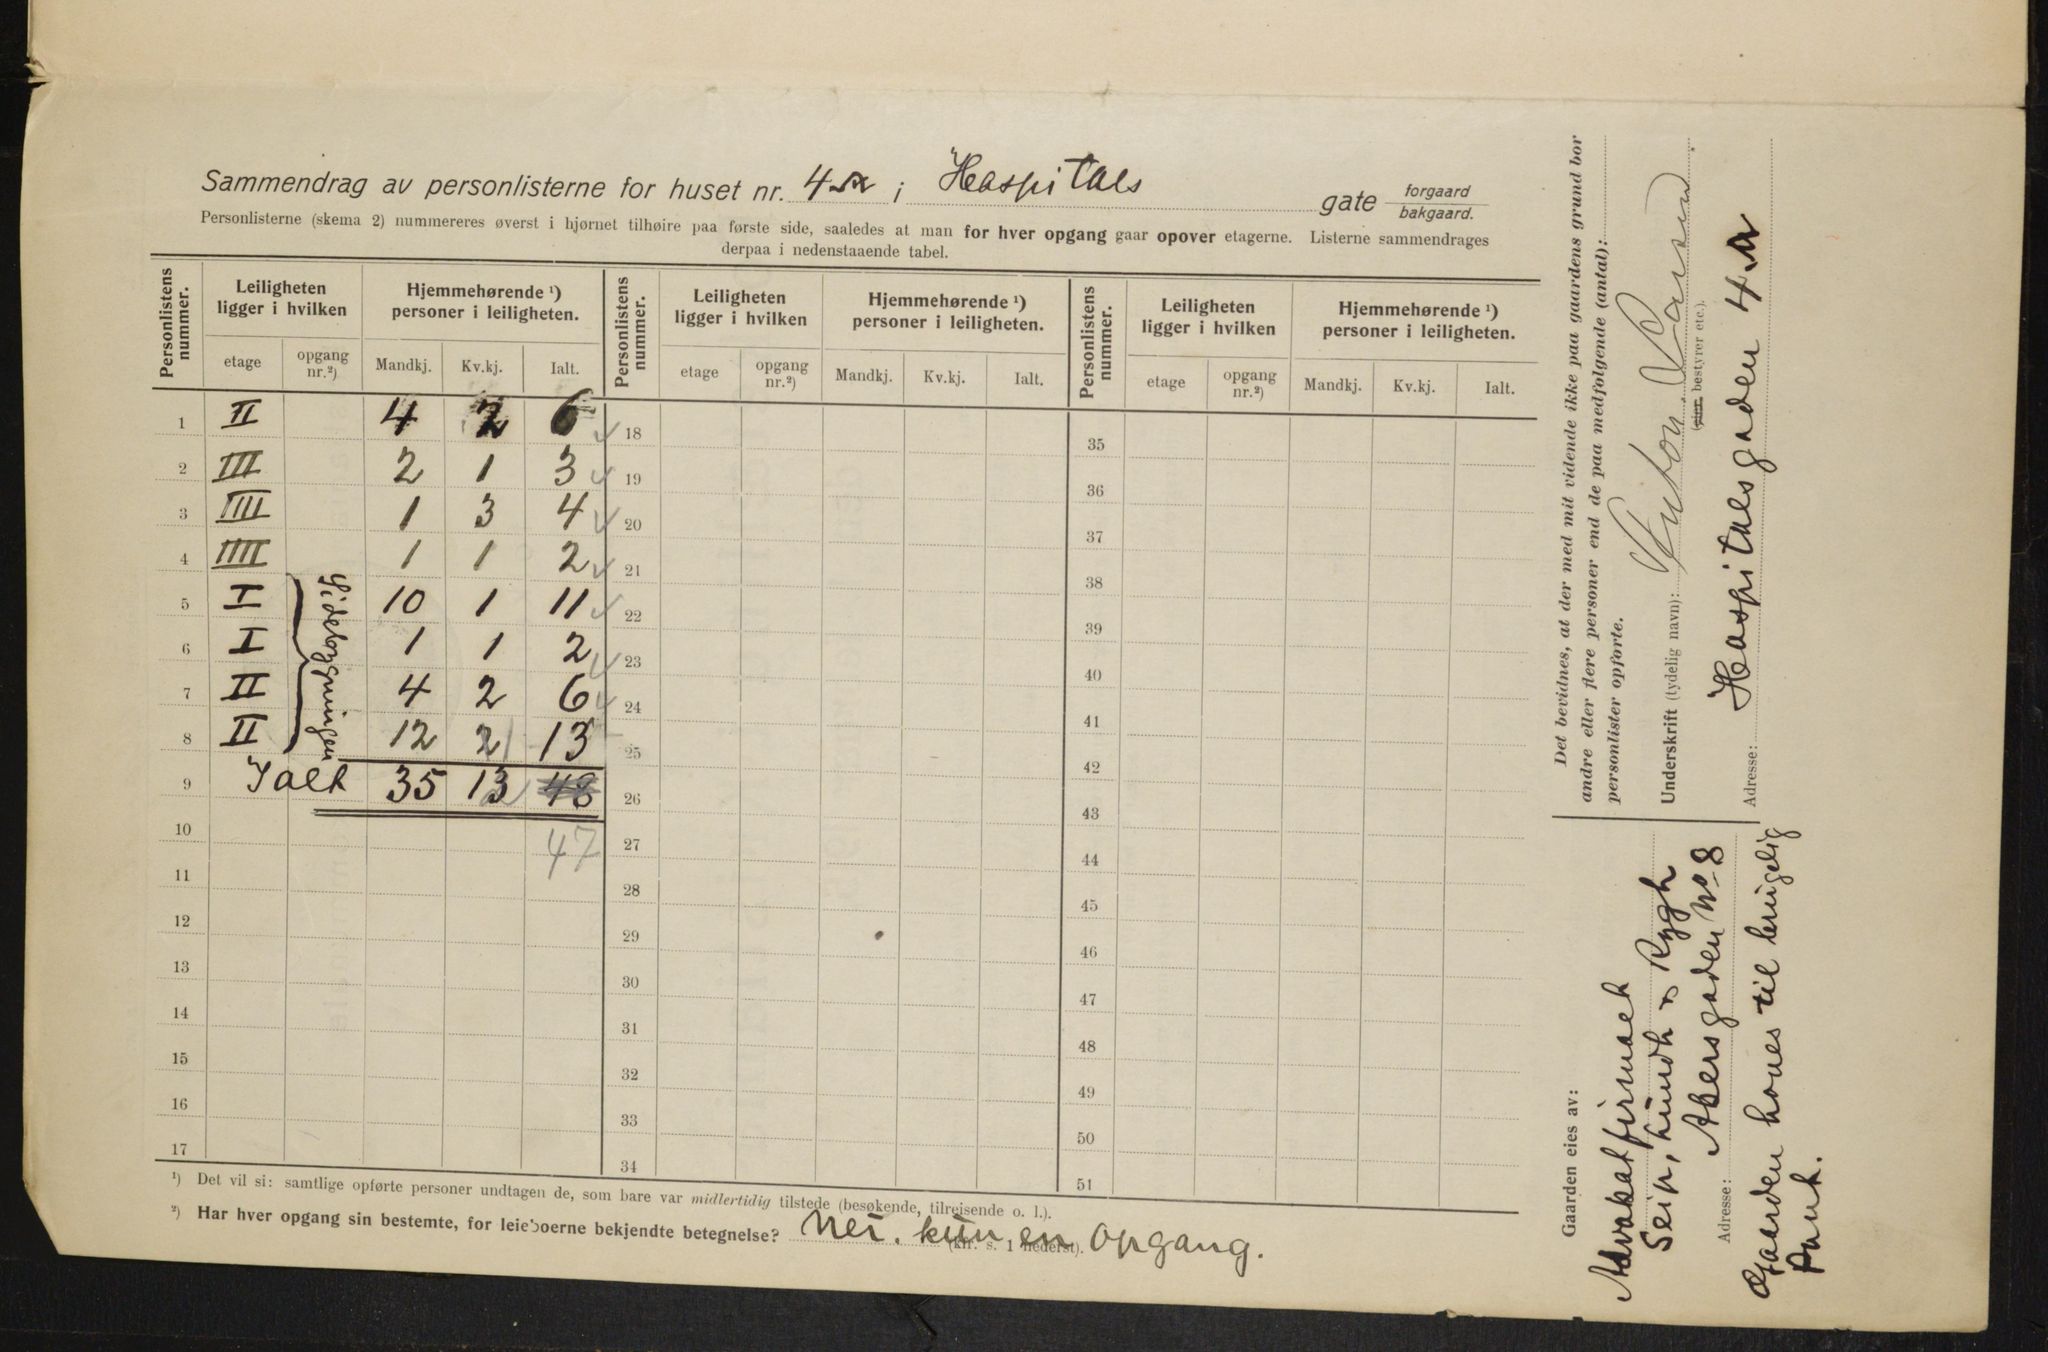 Sammendrag av personlisterne for huset nr. 4a i Hospitals gate forgaard
bakgaard.
Personlisterne (skema 2) nummereres øverst i hjørnet tilhøire paa første side, saaledes at man for hver opgang gaar opover etagerne. Listerne sammendrages
derpaa i nedenstaaende tabel.
Personlistens nummer. Leiligheten ligger i hvilken Hjemmehørende ¹) personer i leiligheten. Personlistens nummer. Leiligheten ligger i hvilken Hjemmehørende ¹) personer i leiligheten. Personlistens nummer. Leiligheten ligger i hvilken Hjemmehørende ¹) personer i leiligheten.
etage opgang nr.²) Mandkj. Kv.kj. Ialt. etage opgang nr.²) Mandkj. Kv.kj. Ialt. etage opgang nr.²) Mandkj. Kv.kj. Ialt.
1 II 4 2 6 18 35
2 III 2 1 3 19 36
3 IIII 1 3 4 20 37
4 IIIII 1 1 2 21 38
5 I 10 1 11 22 39
6 I 1 1 2 23 40
7 II 4 2 6 24 41
8 II 12 2 1 13 25 42
Sidebygningen
9 Ialt 35 13 2 48 26 43
10 47 27 44
11 28 45
12 29 46
13 30 47
14 31 48
15 32 49
16 33 50
17 34 51
¹) Det vil si: samtlige opførte personer undtagen de, som bare var midlertidig tilstede (besøkende, tilreisende o. l.).
²) Har hver opgang sin bestemte, for leieboerne bekjendte betegnelse? Nei. kun en opgang.
(kfr. s. 1 nederst).
Det bevidnes, at der med mit vidende ikke paa gaardens grund bor
andre eller flere personer end de paa medfølgende (antal):
personlister opførte.
Underskrift (tydelig navn): Anton Larsen
(eier, bestyrer etc.).
Adresse: Hospitalsgaden 4a
Gaarden eies av:
Advokatfirmaet
Lundh & Rygh
Adresse: Akersgaden No 8
Gaarden
til